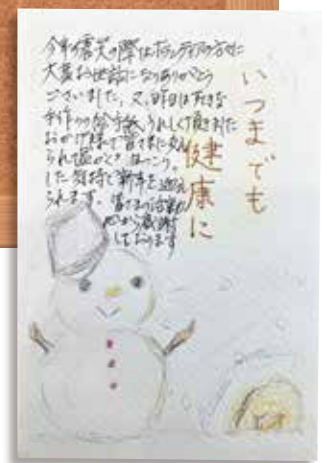 今年の震災の際はボランティアの方々に
大変お世話になりありがとう
ございました。又、昨日はすてきな
手作りの絵手紙、うれしく頂きました
おかげ様で皆さまに
られて ほっこり。
した気持で新年を迎え
られます。皆さまの活動に
心から感謝
しております
いつまでも
健康に